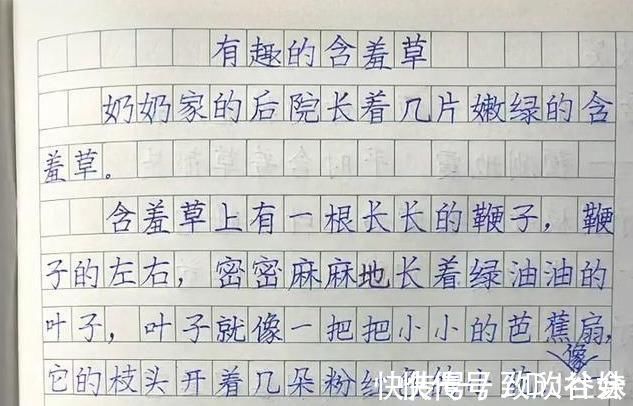 有趣的含羞草
奶奶家的后院长着几片嫩绿的含
羞草。
含羞草上有一根长长的鞭子，鞭
子的左右，密密麻麻地长着绿油油的
叶子，叶子就像一把把小小的芭蕉扇，
像
它的枝头开着几朵粉红